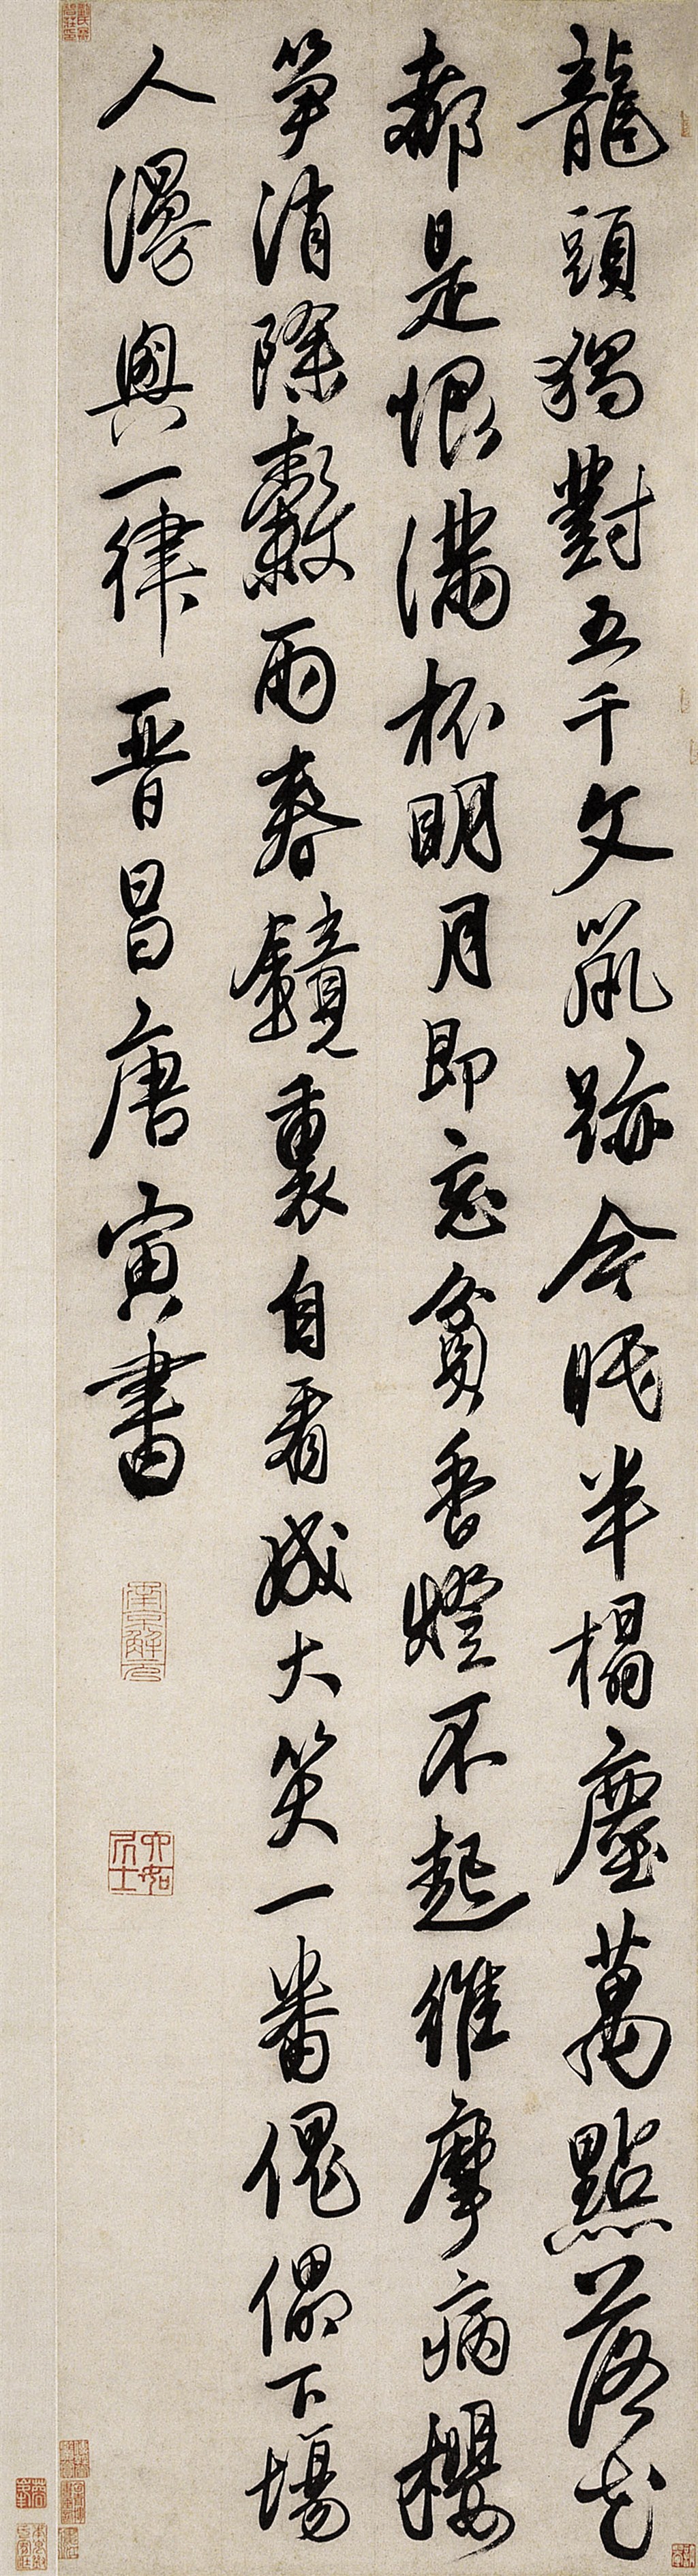 龍頭獨對五千文鼠跡今眠半榻塵萬點落花
都是恨滿杯明月即忘貧香燈不起維摩病櫻
笋消除穀雨春鏡裏自看成大笑一番傀儡下場
人漫興一律晉昌唐寅書
南京解元
六如居士